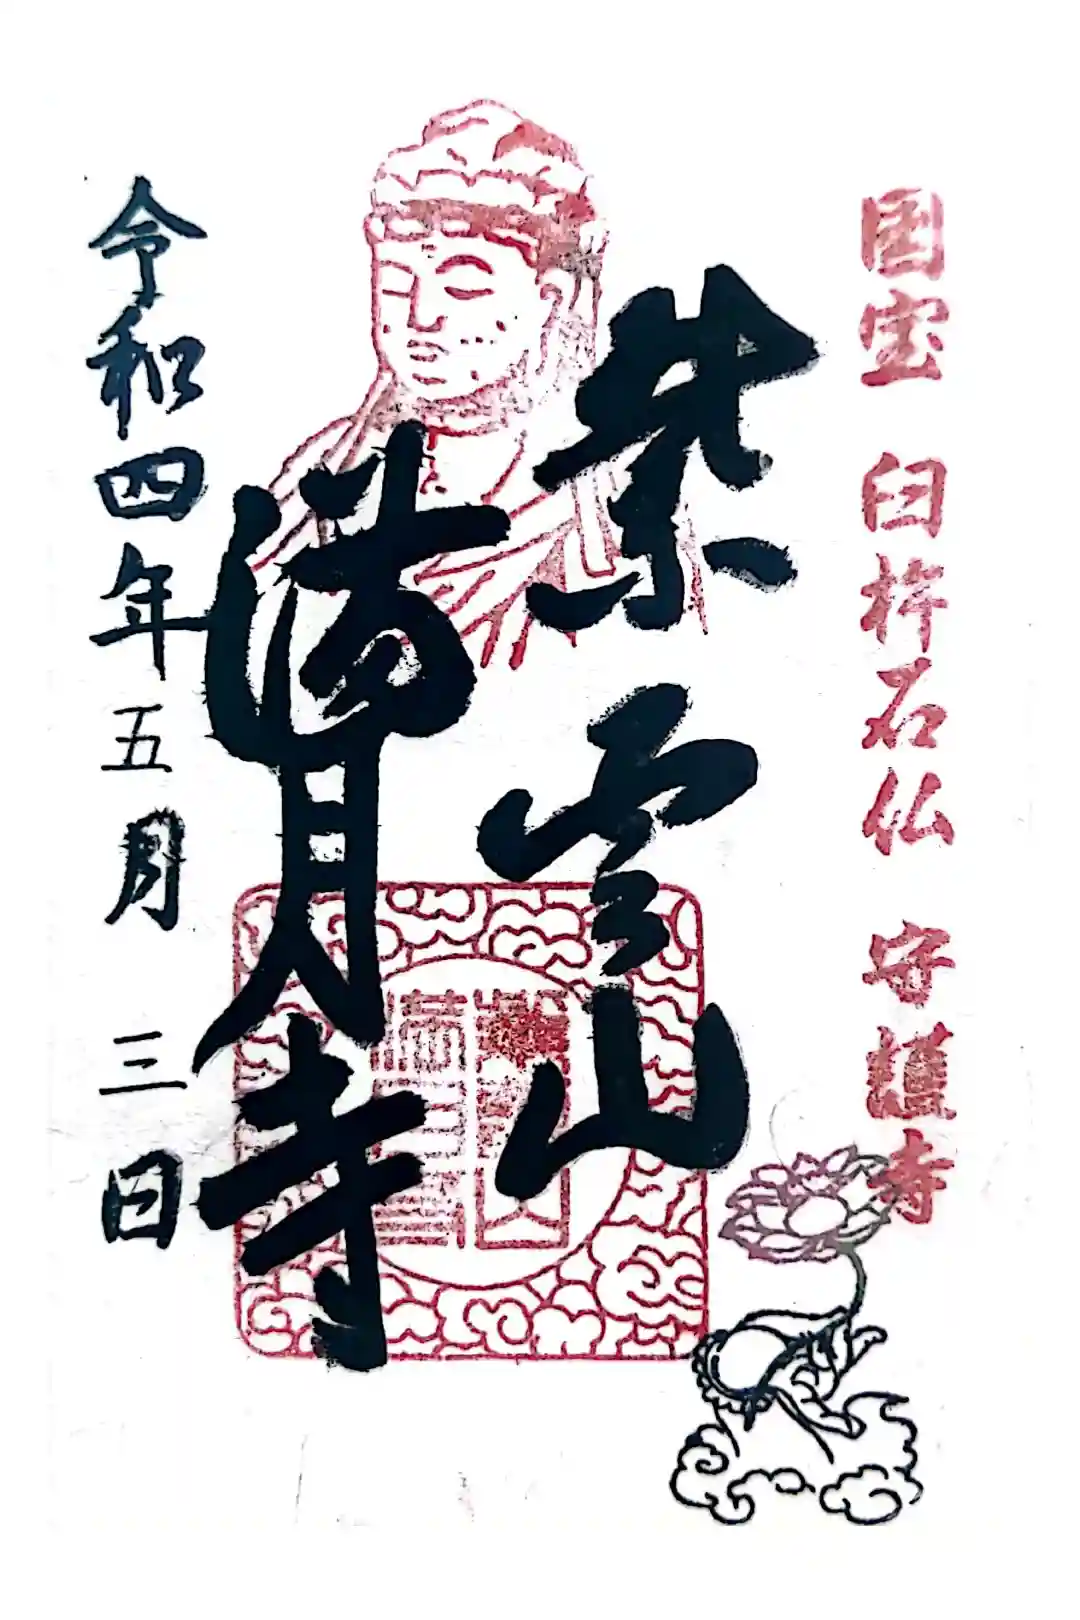 国宝 臼杵石仏 守護寺
紫雲山
満月寺
令和四年五月 三日